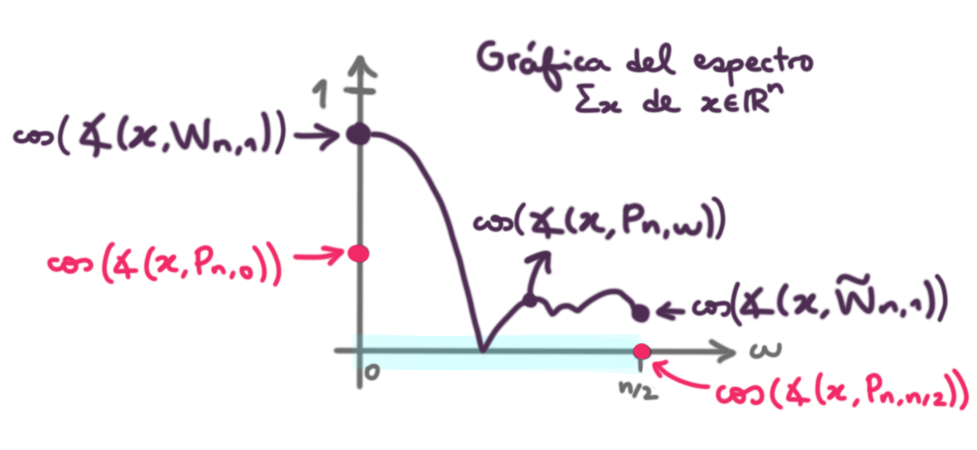 Gráfica del espectro
Σx de x∈ℝⁿ
1
cos(∡(x, W_{n,1}))
cos(∡(x, P_{n,w}))
cos(∡(x, P_{n,0}))
cos(∡(x, W̃_{n,1}))
ω
0
n/2
cos(∡(x, P_{n,n/2}))